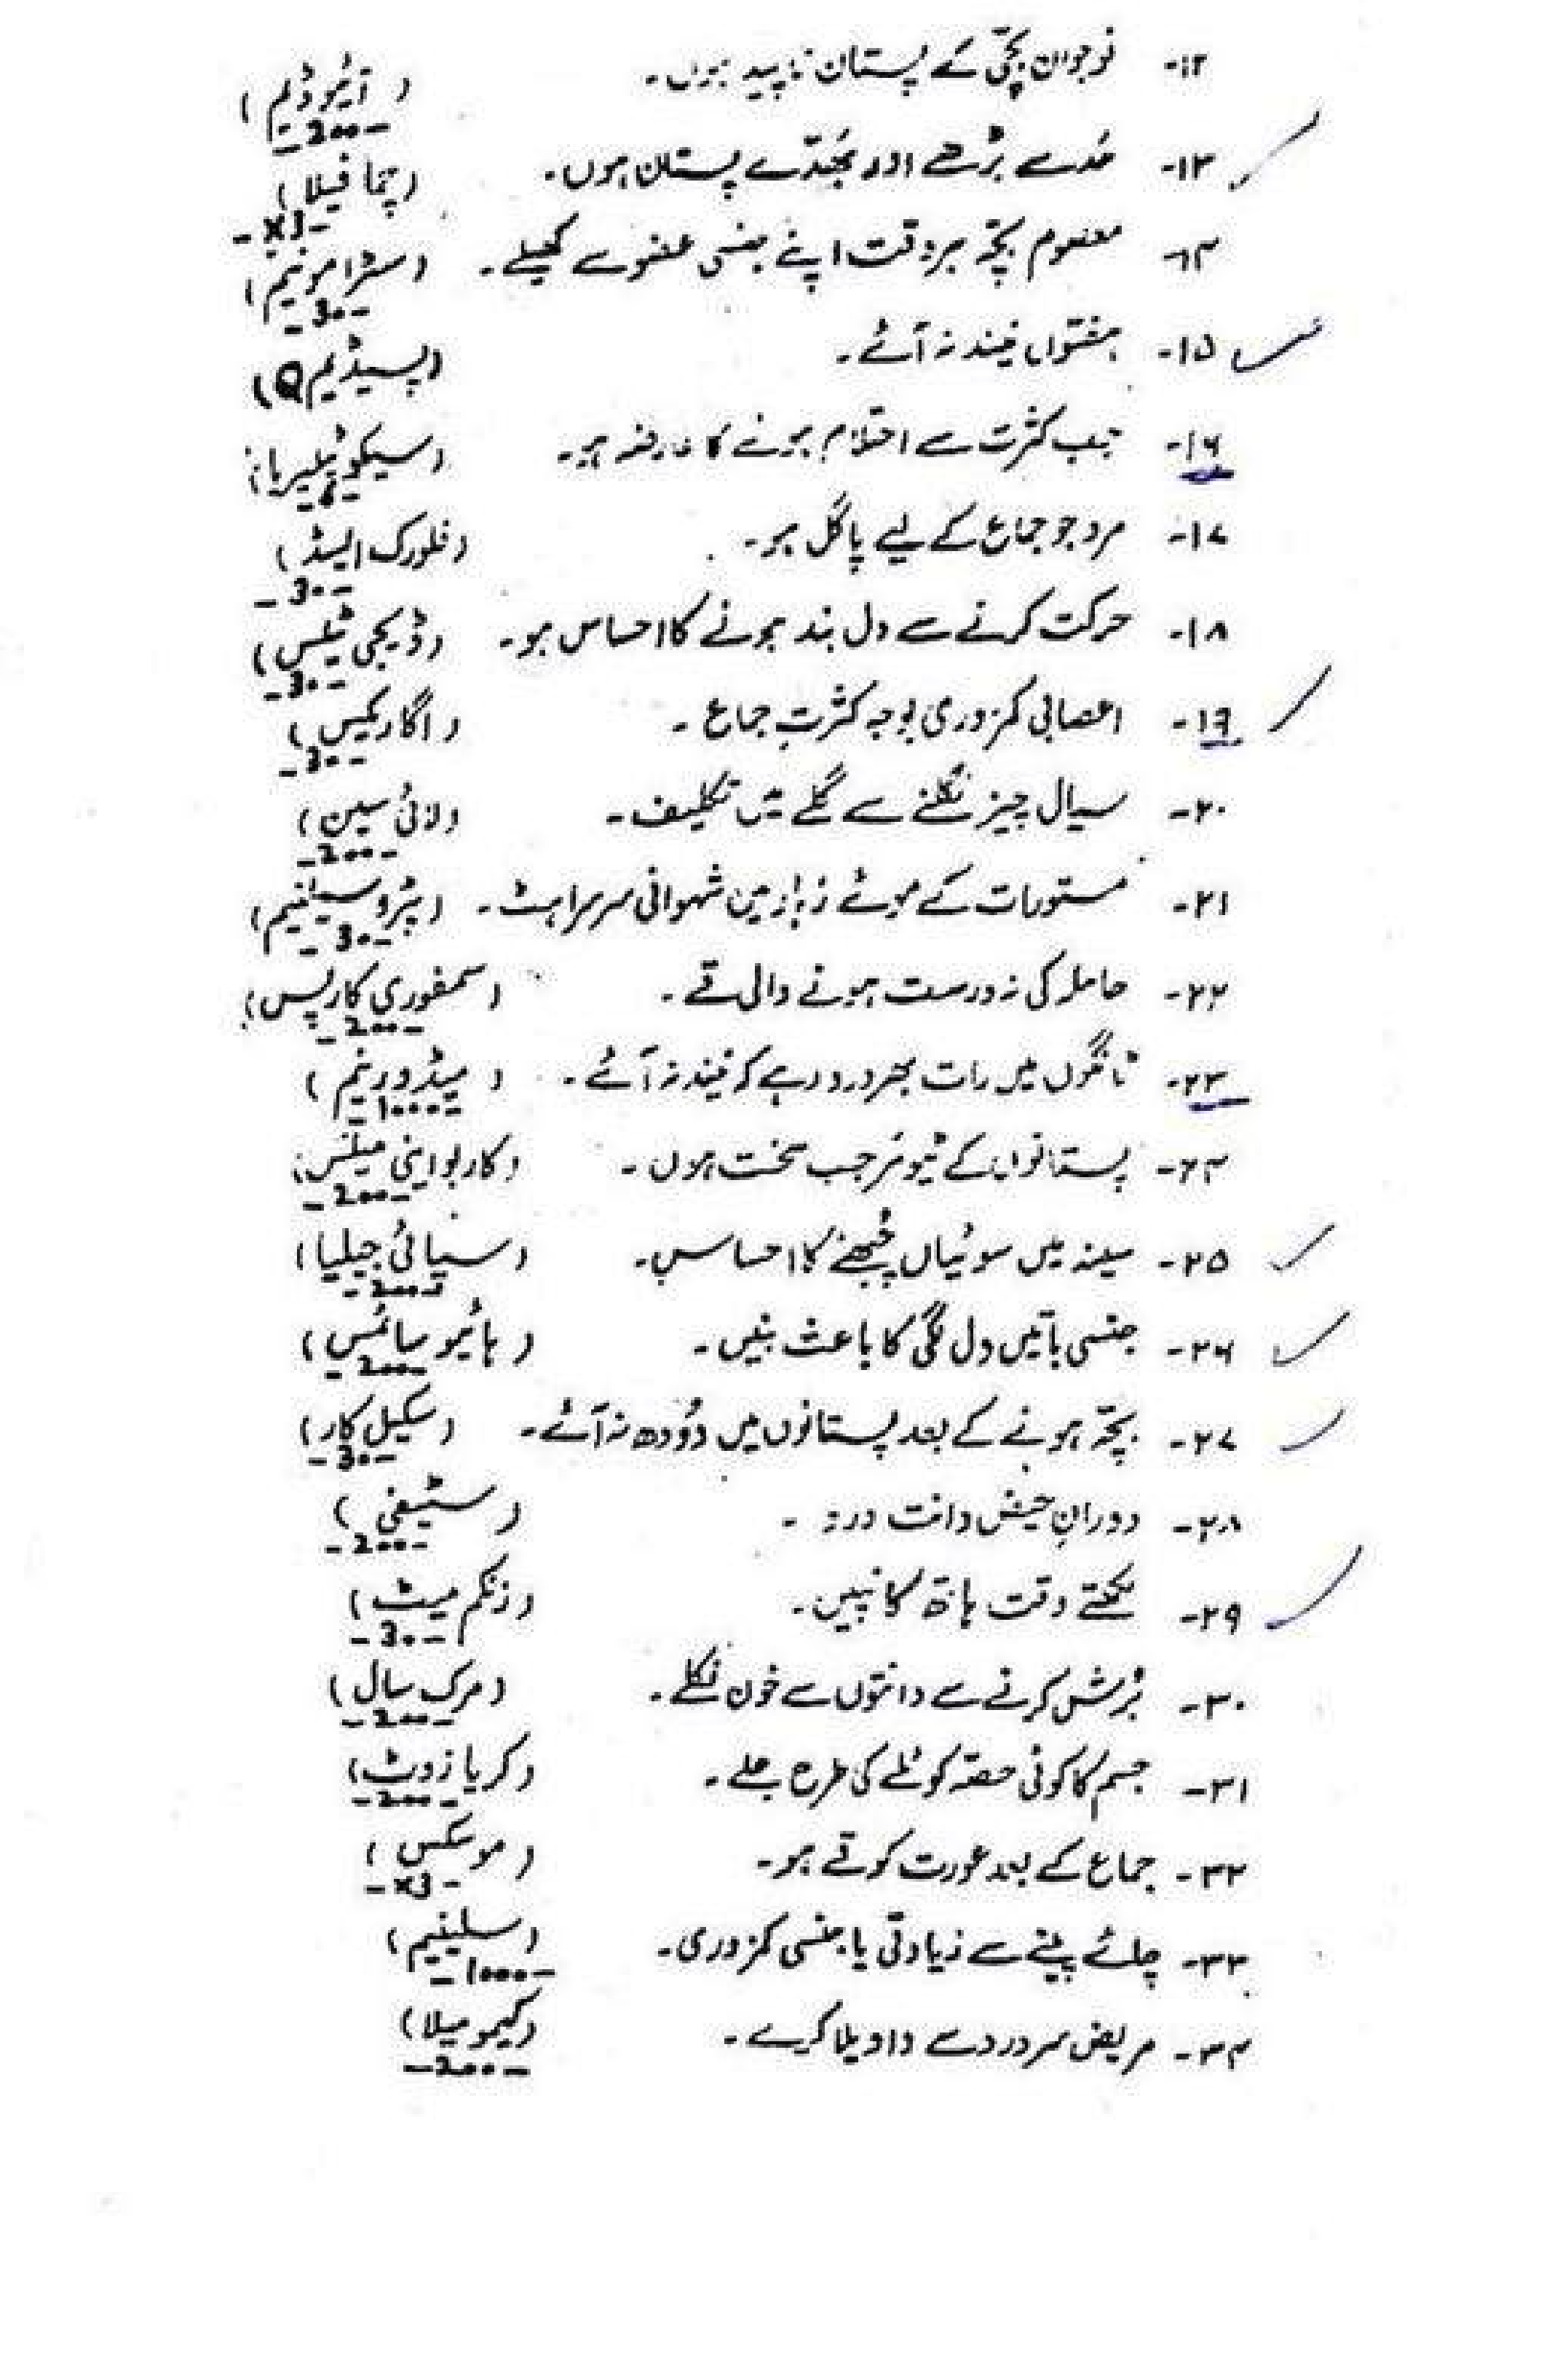 ۱۲- نوجوان بچّی کے پستان ناپید ہوں۔ (آئیوڈیم)
-200-
۱۳- حد سے بڑھے اور بھدّے پستان ہوں۔ (چما فیلا)
-3X-
۱۴- معصوم بچّہ ہر وقت اپنے جنسی عضو سے کھیلے۔ (سٹرامونیم)
-30-
۱۵- ہفتوں نیند نہ آئے۔ (پسیڈیم Q)
۱۶- جب کثرت سے احتلام ہونے کا عارضہ ہو۔ (سیکوٹیلیریا)
-6-
۱۷- مرد جو جماع کے لیے پاگل ہو۔ (فلورک ایسڈ)
-30-
۱۸- حرکت کرنے سے دل بند ہونے کا احساس ہو۔ (ڈیجی ٹیلس)
-30-
۱۹- اعصابی کمزوری بوجہ کثرتِ جماع۔ (اگاریکس)
-30-
۲۰- سیال چیز نگلنے سے گلے میں تکلیف۔ (لائی سین)
-200-
۲۱- مستورات کے موئے زہار میں شہوانی سرسراہٹ۔ (پڑوسیلینیم)
-30-
۲۲- حاملہ کی نہ درست ہونے والی قے۔ (سمفوری کارپس)
-200-
۲۳- ٹانگوں میں رات بھر درد رہے کہ نیند نہ آئے۔ (میڈورینم)
-1000-
۲۴- پستانوں کے ٹیومر جب سخت ہوں۔ (کاربو اینی میلس)
-200-
۲۵- سینہ میں سوئیاں چُبھنے کا احساس۔ (سپائی جیلیا)
-200-
۲۶- جنسی باتیں دل لگی کا باعث بنیں۔ (ہائیو سائمس)
-200-
۲۷- بچّہ ہونے کے بعد پستانوں میں دُودھ نہ آئے۔ (سکیل کار)
-30-
۲۸- دورانِ حیض دانت درد۔ (سٹیفی)
-200-
۲۹- لکھتے وقت ہاتھ کانپیں۔ (زنکم میٹ)
-30-
۳۰- بُرش کرنے سے دانتوں سے خون نکلے۔ (مرک سال)
-200-
۳۱- جسم کا کوئی حصّہ کوئلے کی طرح جلے۔ (کریازوٹ)
-200-
۳۲- جماع کے بعد عورت کو قے ہو۔ (موسکس)
-3X-
۳۳- چائے پینے سے زیادتی یا جنسی کمزوری۔ (سلینیم)
-1000-
۳۴- مریض سر درد سے واویلا کرے۔ (کیمومیلا)
-200-